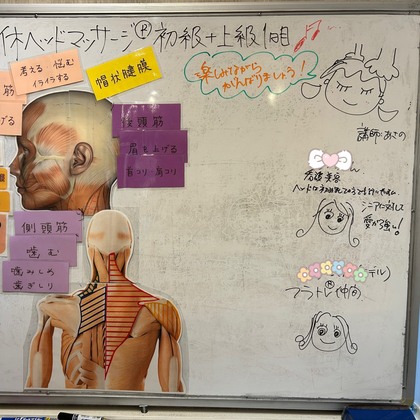 体ヘッドマッサージ® 初級+上級1日目
楽しみながら
がんばりましょう!
考える 悩む
イライラする
帽状腱膜
筋
げる
後頭筋
眉を上げる
首コリ 肩コリ
側頭筋
噛む
噛みしめ
歯ぎしり
講師:あさの
看護美容
シニアに対して
愛が強い!
デル)
フラトレ®仲間